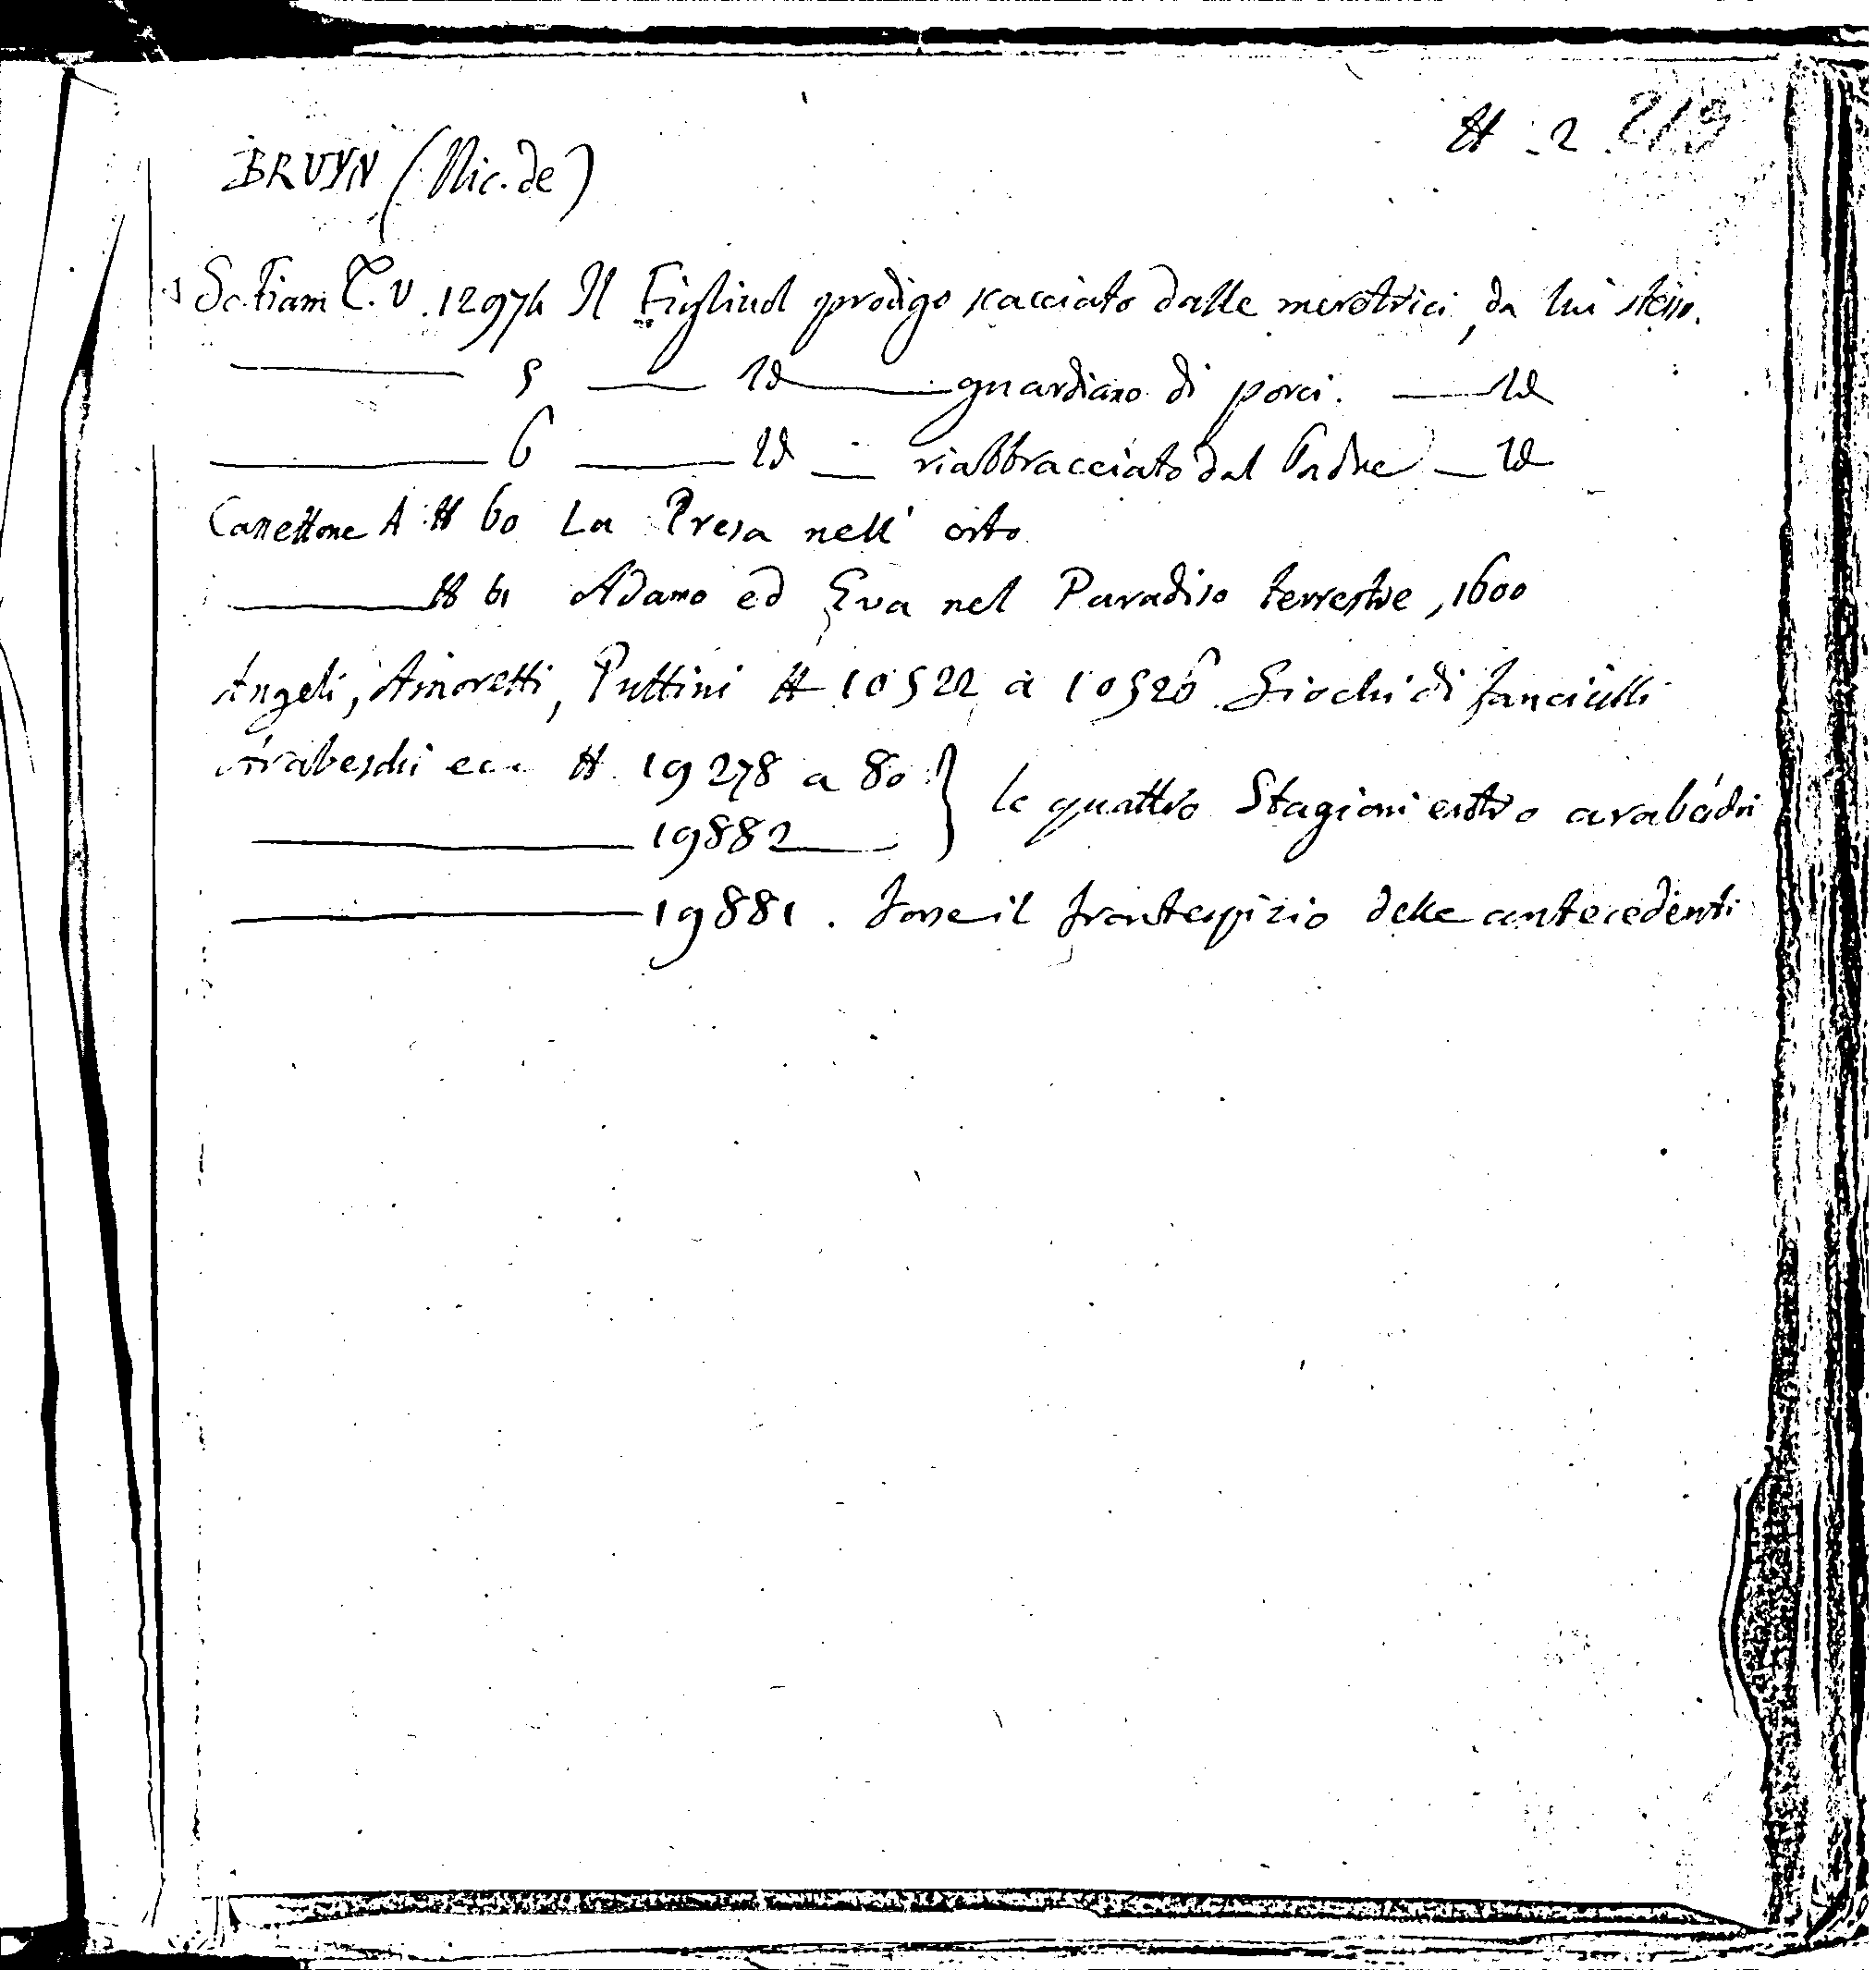 # . 2 . 219
BRUYN (Nic. de)
Sc. Fiam T. V . 12974 Il Figliuol prodigo scacciato dalle meretrici, da lui stesso.
——— 5 —— Id —— guardiano di porci. —— Id
——— 6 —— Id — riabbracciato dal Padre — Id
Cassettone A # 60 La Presa nell' orto
——— # 61 Adamo ed Eva nel Paradiso terrestre, 1600
Angeli, Amoretti, Puttini # 10522 a 10526 Giochi di fanciulli
Arabeschi ecc # 19278 a 80 } le quattro Stagioni entro arabeschi
——— 19882 ——
——— 19881 . Forse il frontespizio delle antecedenti